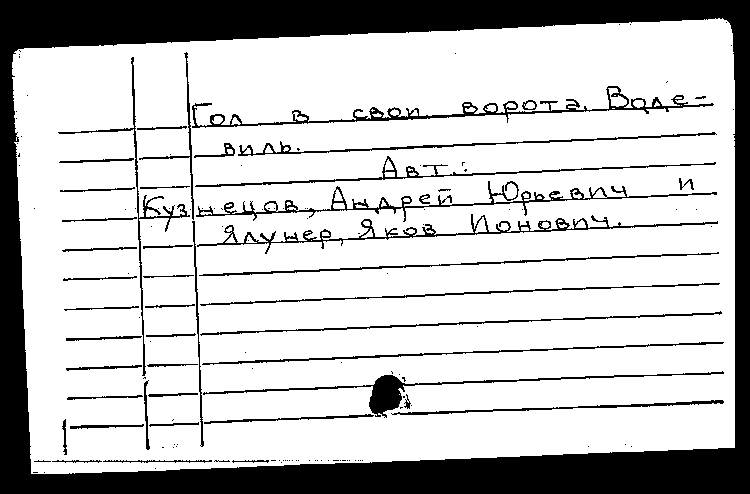 Гол в свои ворота. Воде-
виль.
Авт.:
Кузнецов, Андрей Юрьевич и
Ялунер, Яков Ионович.